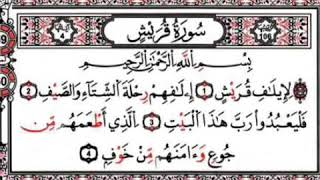 سُورَةُ قُرَيْشٍ
بِسْمِ اللَّهِ الرَّحْمَٰنِ الرَّحِيمِ
لِإِيلَافِ قُرَيْشٍ ١ إِۦلَافِهِمْ رِحْلَةَ الشِّتَاءِ وَالصَّيْفِ ٢
فَلْيَعْبُدُوا رَبَّ هَٰذَا الْبَيْتِ ٣ الَّذِي أَطْعَمَهُم مِّن
جُوعٍ وَءَامَنَهُم مِّنْ خَوْفٍ ٤